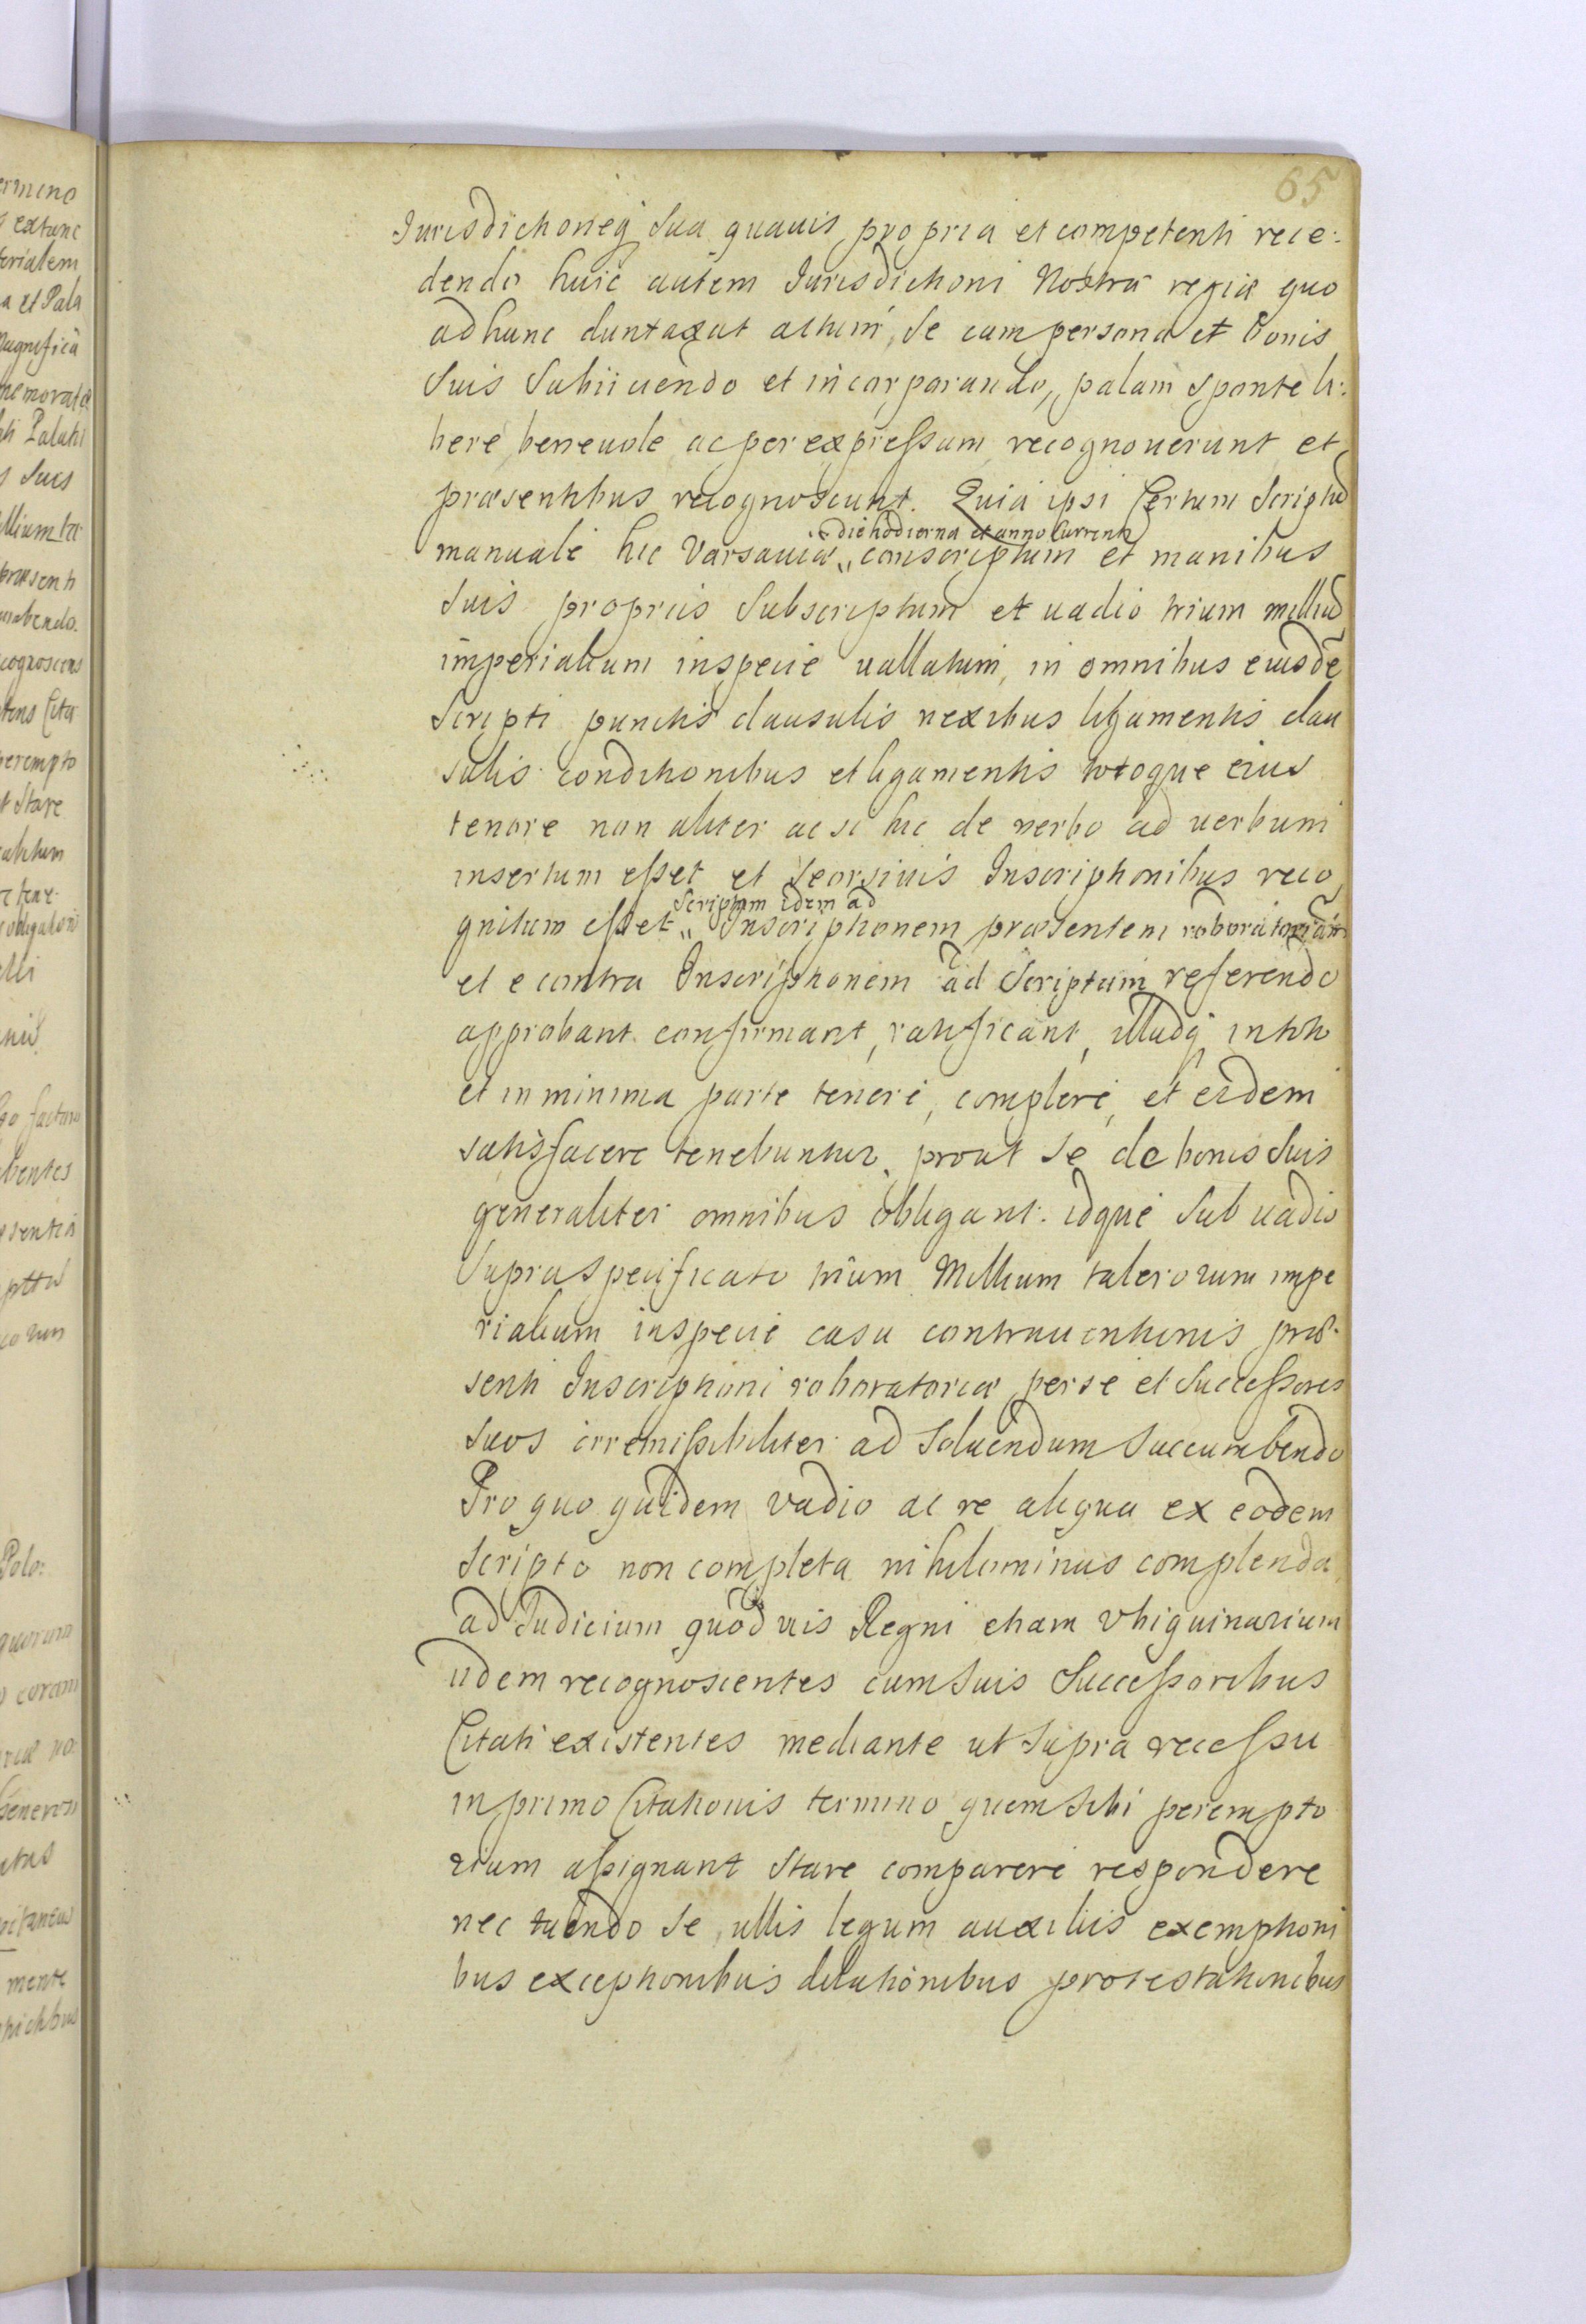 65
Iurisdictioneq sua quauis propria et competenti rece:
dendo huic autem Iurisdictioni Nostræ regiæ quo
ad hunc duntaxat actum, se cum persona et bonis
suis subiiciendo et incorporando, palam sponte li:
bere beneuole ac per expressum recognouerunt et
præsentibus recognoscunt. Quia ipsi Certum Scriptũ
die hodierna et anno Currenti
manuale hic Varsauiæ conscriptum et manibus
suis propriis subscriptum et uadio trium milliũ
imperialium in specie uallatum, in omnibus eiusdẽ
Scripti punctis clausulis nexibus ligamentis clau
sulis conditionibus et ligamentis totoque eius
tenore non aliter ac si hic de uerbo ad uerbum
insertum esset et seorsiuis Inscriptionibus reco
Scriptum idem ad
gnitum esset Inscriptionem præsentem roboratoriam
et e contra Inscriptionem ad Scriptum referendo
approbant confirmant, ratificant, illudq in toto
et in minima parte teneri, complere, et eidem
satisfacere tenebuntur, prout se de bonis suis
generaliter omnibus obligant. idque sub uadio
supraspecificato trium Millium talerorum impe
rialium in specie casu contrauentionis præ:
senti Inscriptioni roboratoriæ per se et successores
suos irremissibiliter ad soluendum succumbendo
Pro quo quidem vadio ac re aliqua ex eodem
Scripto non completa nihilominus complenda
ad Iudicium quoduis Regni etiam vbiquinarium
iidem recognoscentes cum suis Successoribus
Citati existentes mediante ut supra recessu
in primo Citationis termino quem sibi perempto
rium assignant stare comparere respondere
nec tuendo se ullis legum auxiliis exemptioni
bus exceptionibus dilationibus protestationibus